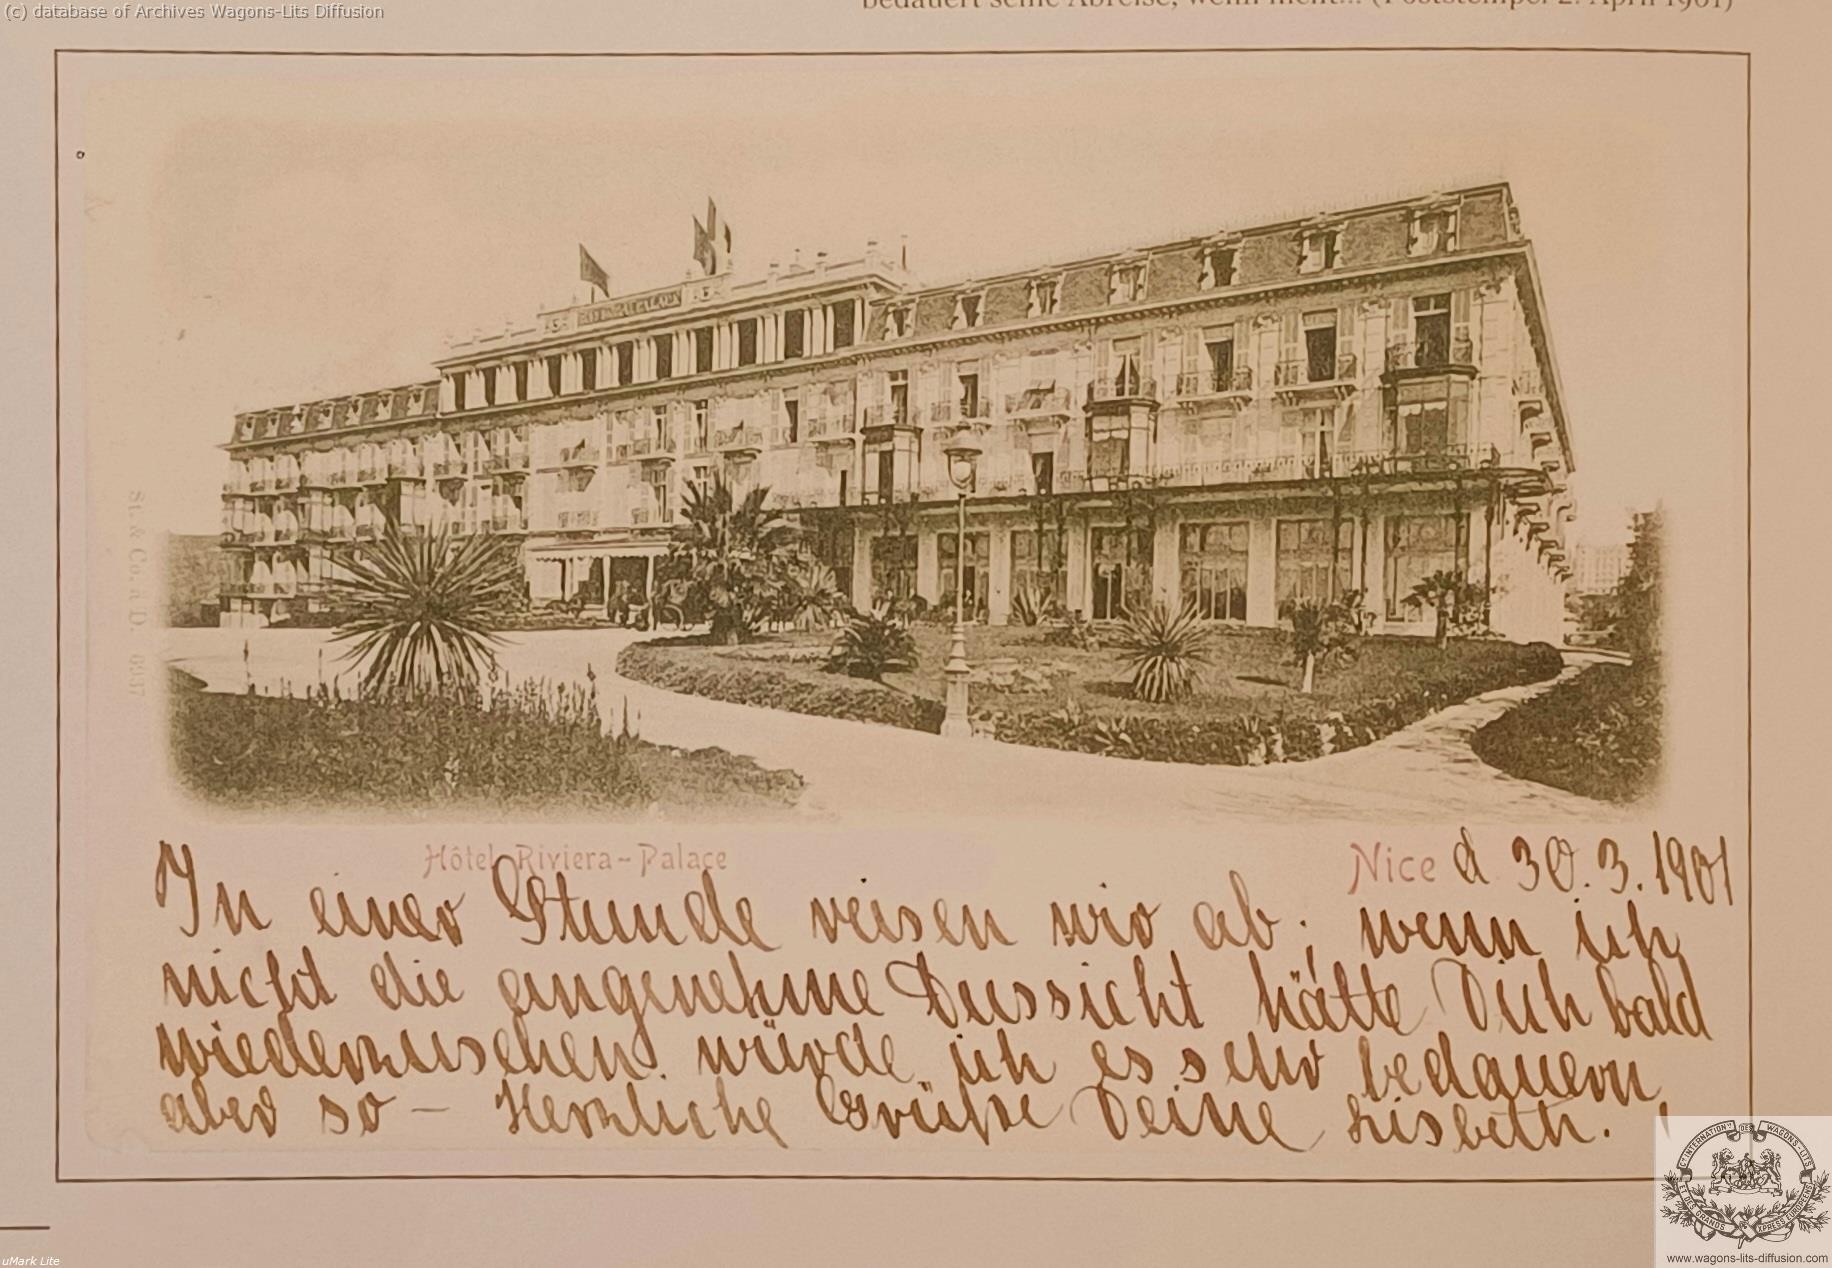 (c) database of Archives Wagons-Lits Diffusion
bedauert seine Abreise, wenn nicht... (Poststempel 2. April 1901)
St. & Co. a. D.
Hôtel Riviera-Palace
Nice d 30. 3. 1901
In einer Stunde reisen wir ab; wenn ich
nicht die angenehme Aussicht hätte Dich bald
wiederzusehen, würde ich es sehr bedauern
aber so – Herzliche Grüße Deine Lisbeth. !
CIE INTERNATIONLE DES WAGONS-LITS
ET DES GRANDS EXPRESS EUROPÉENS
www.wagons-lits-diffusion.com
uMark Lite